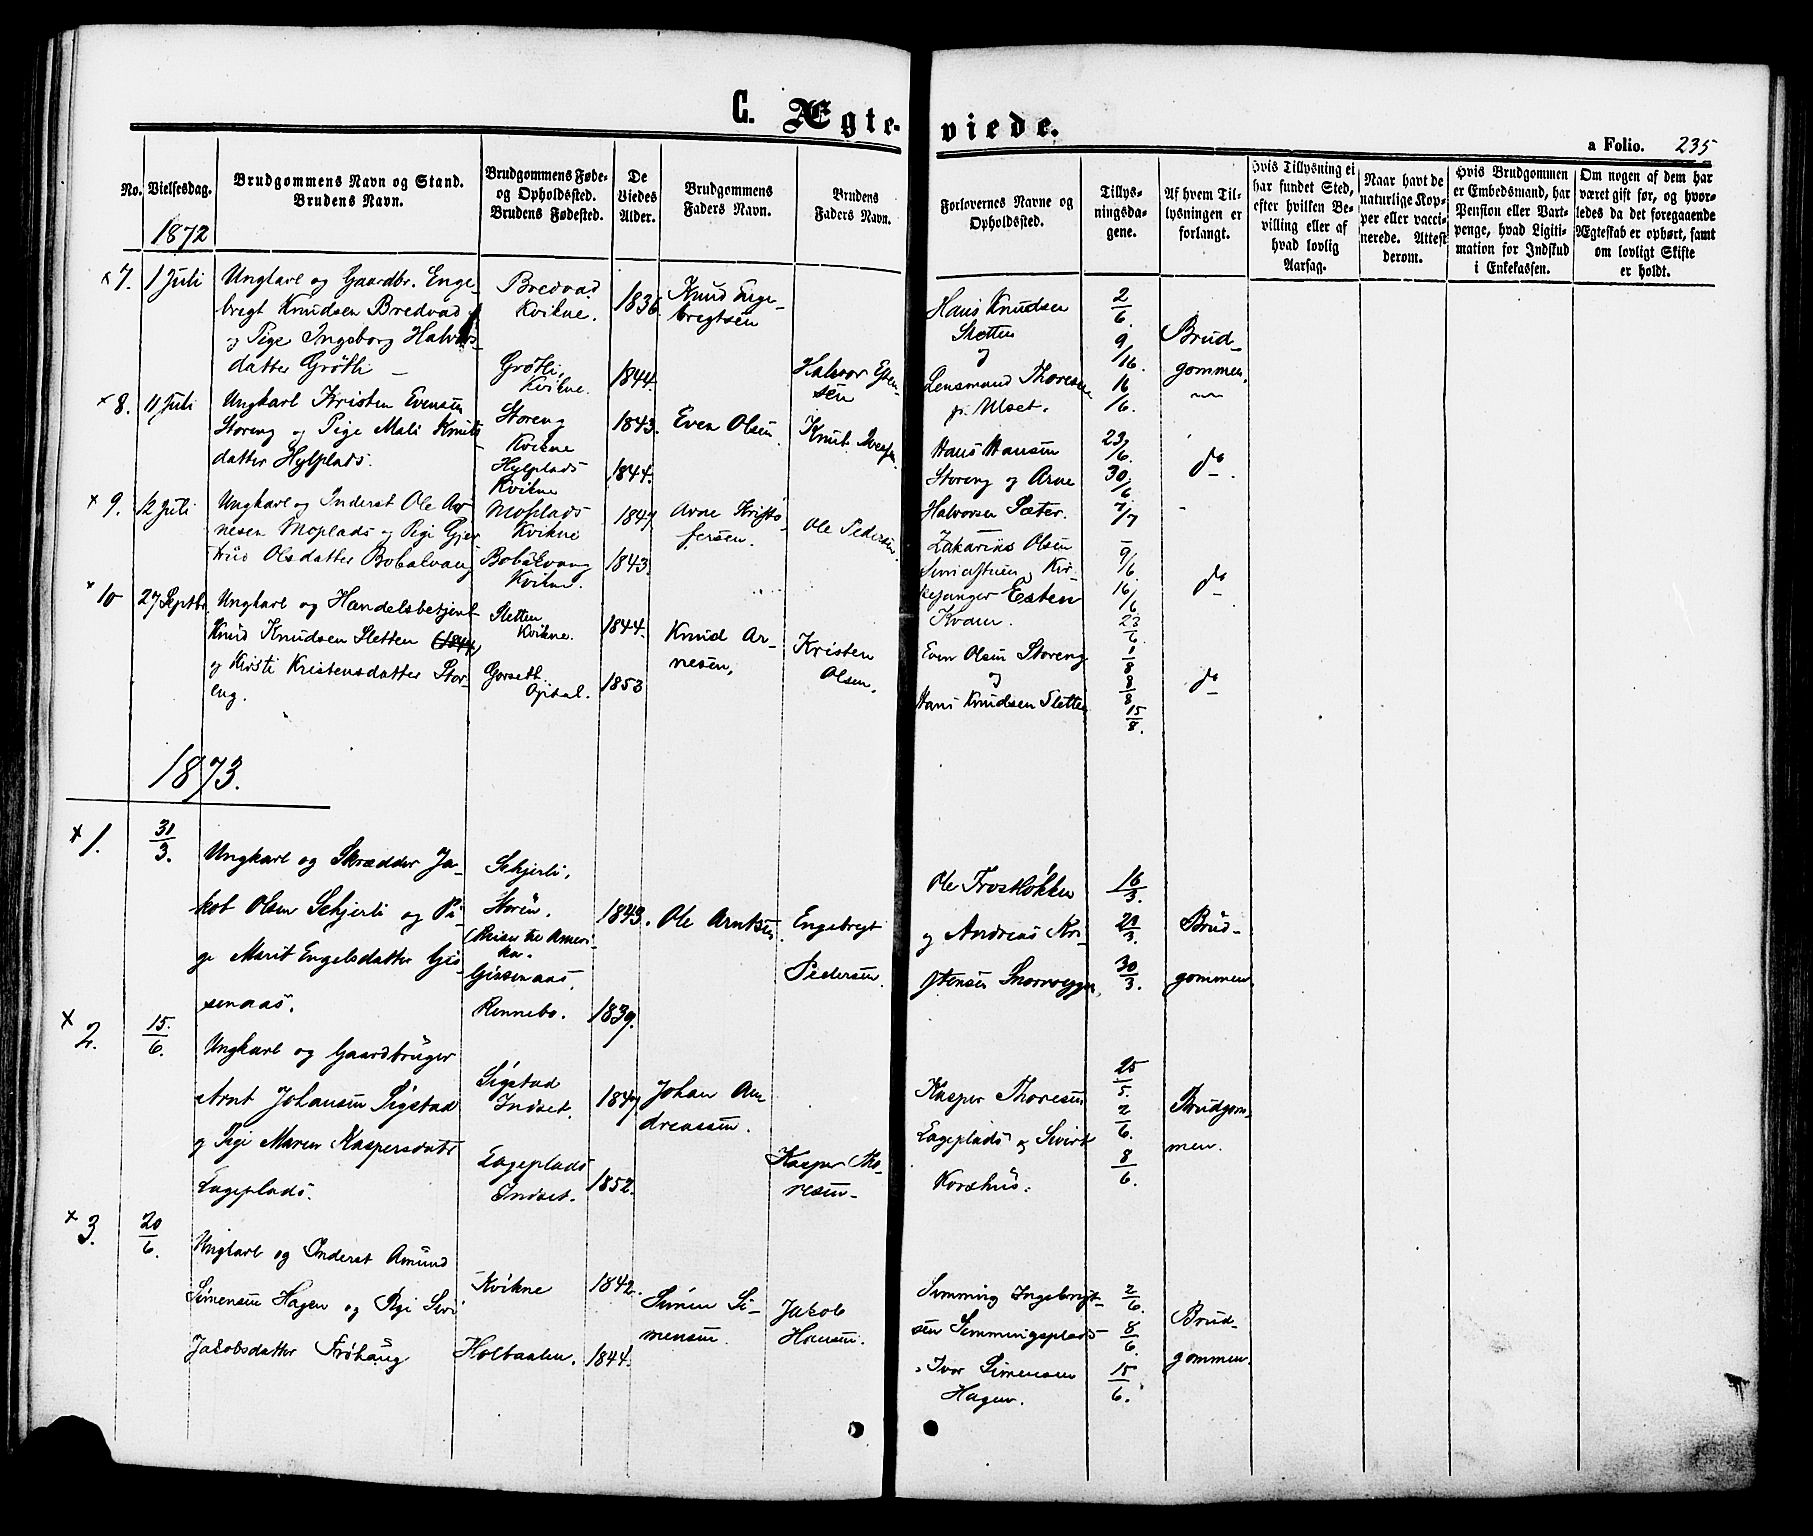 C. Ægte-
viede.
a Folio. 235
No.
Vielsesdag.
Brudgommens Navn og Stand.
Brudens Navn.
Brudgommens Føde-
og Opholdssted.
Brudens Fødested.
De
Viedes
Alder.
Brudgommens
Faders Navn.
Brudens
Faders Navn.
Forlovernes Navne og
Opholdssted.
Tillys-
ningsda-
gene.
Af hvem Til-
lysningen er
forlangt.
Hvis Tillysning ei
har fundet Sted,
efter hvilken Be-
villing eller af
hvad lovlig
Aarsag.
Naar havt de
naturlige Kop-
per eller vacci-
nerede. Attest
derom.
Hvis Brudgommen
er Embedsmand, har
Pension eller Vart-
penge, hvad Ligiti-
mation for Indskud
i Enkekassen.
Om nogen af dem har
været gift før, og hvor-
ledes da det foregaaende
Ægteskab er ophørt, samt
om lovligt Skifte
er holdt.
1872
x 7. 1 Juli
Ungkarl og Gaardbr. Enge-
bregt Knudsen Bredvad
og Pige Ingeborg Halvors-
datter Grøtli
Bredvad
Kvikne.
Grøtli,
Kvikne.
1836
1844.
Knud Enge-
bregtsen
Halvor Esten-
sen
Hans Knudsen
Sletten
og
Lensmand Thoresen
p. Ulset.
2/6
9/6
16/6.
Brud-
gommen
x 8. 11 Juli
Ungkarl Kristen Evensen
Storeng og Pige Mali Knuts
datter Hylplads.
Storeng
Kvikne
Hylplads
Kvikne
1843.
1844.
Even Olsen
Knut Iversen
Hans Hansen
Storeng og Arne
Halvorsen Sæter.
23/6.
30/6
7/7
do
x 9. 12 Juli
Ungkarl og Inderst Ole Ar-
nesen Moplads og Pige Gjer
trud Olsdatter Bobakvang
Moplads
Kvikne
Bobakvang
Kvikne.
1847
1843.
Arne Kristo-
fersen.
Ole Pedersen
Zakarius Olsen
Smedstuen, Kir-
kesanger Esten
Kvam.
9/6.
16/6
23/6
do
x 10 27 Septbr.
Ungkarl og Handelsbetjent
Knud Knudsen Sletten (1844)
og Kirsti Kristensdatter Stor-
eng.
Sletten
Kvikne.
Gorseth
Opdal.
1844.
1853
Knud Ar-
nesen,
Kristen
Olsen.
Even Olsen Storeng
og
Hans Knudsen Sletten
15/8.
do
1873.
x 1. 30/3.
Ungkarl og Skrædder Ja-
kob Olsen Schjerli og Pi-
ge Marit Engelsdatter Gis-
senaas.
Schjerli,
Støren.
(Reiser til Ameri-
ka.
Gissenaas,
Rennebo.
1843.
1839.
Ole Arntsen
Engebregt
Pedersen
Ole Troskløkken
og Andreas Kri-
stensen Snorroeggen,
16/3.
23/3.
30/3.
Brud-
gommen
x 2. 15/6.
Ungkarl og Gaardbruger
Arnt Johansen Sigstad
og Pige Maren Kaspersdatr
Lageplads.
Sigstad
Indset.
Lageplads
Indset.
1847
1852.
Johan An-
dreassen.
Kasper Tho-
resen
Kasper Thoresen
Lageplads og Sivert
Korshus.
25/5.
2/6.
8/6.
Brudgom-
men.
x 3. 20/6.
Ungkarl og Inderst Amund
Simensen Hagen og Pige Siri
Jakobsdatter Frøhaug
Kvikne
Holtaalen.
1842.
1844.
Simen Si-
mensen.
Jakob
Hansen.
Simming Ingebrigt-
sen Simmingsplads
Ivar Simensen
Hagen.
2/6.
8/6.
15/6.
Brud-
gommen.